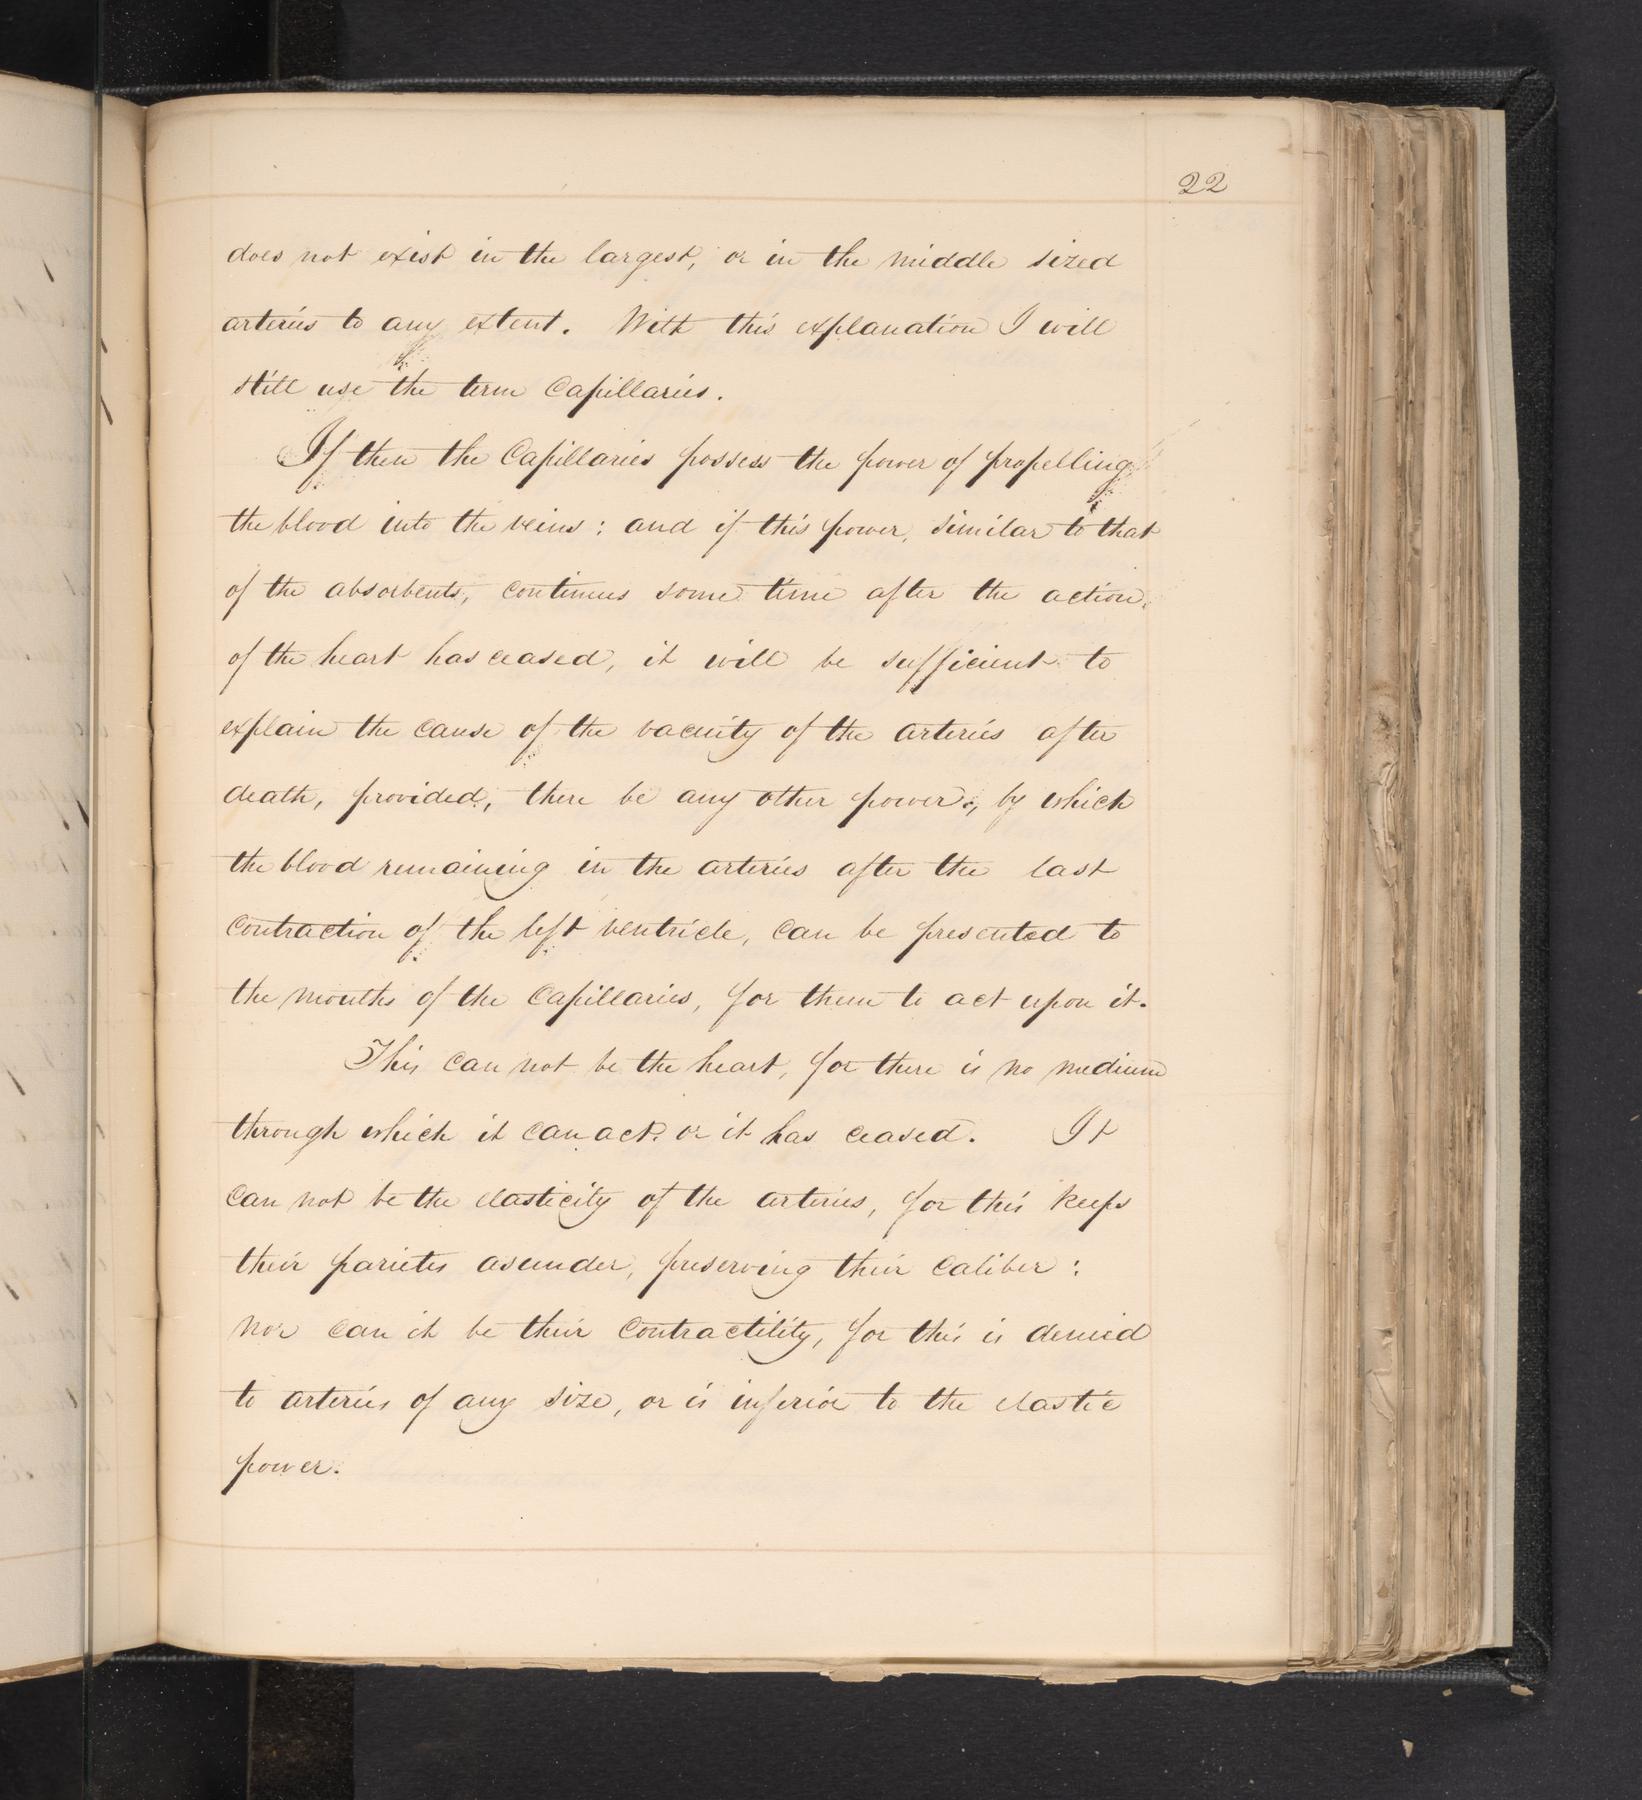 22
does not exist in the largest, or in the middle sized
arteries to any extent. With this explanation I will
still use the term Capillaries.
If then the Capillaries possess the power of propelling
the blood into the veins: and if this power, similar to that
of the absorbents, continues some time after the action
of the heart has ceased, it will be sufficient to
explain the cause of the vacuity of the arteries after
death, provided, there be any other power, by which
the blood remaining in the arteries after the last
contraction of the left ventricle, can be presented to
the mouths of the Capillaries, for them to act upon it.
This can not be the heart, for there is no medium
through which it can act or it has ceased. It
can not be the elasticity of the arteries, for this keeps
their parietes asunder, preserving their caliber:
nor can it be their contractility, for this is denied
to arteries of any size, or is inferior to the elastic
power.